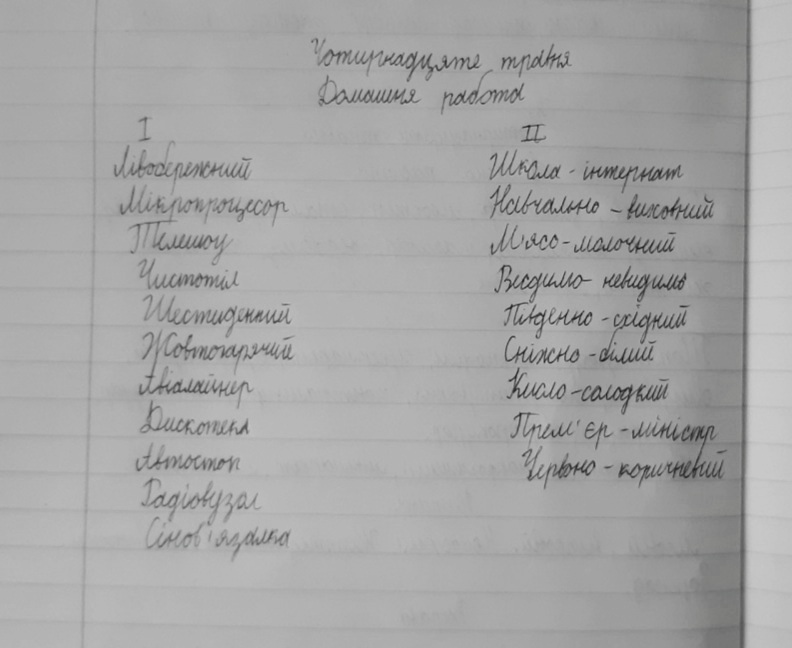 Чотирнадцяте травня
Домашня работа
I
Лівобережний
Мікропроцесор
Телешоу
Чистотіл
Шестиденний
Жовтогарячий
Авіалайнер
Дискотека
Автостоп
Радіовузол
Сінов'язалка
II
Школа - інтернат
Навчально - виховний
М'ясо - молочний
Видимо - невидимо
Південно - східний
Сніжно - білий
Кисло - солодкий
Прем'єр - міністр
Червоно - коричневий